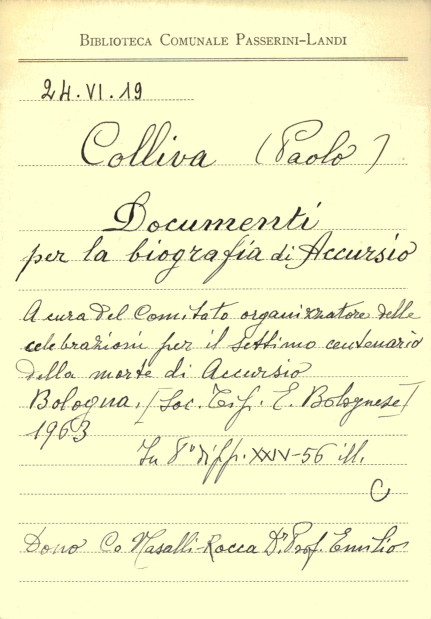 BIBLIOTECA COMUNALE PASSERINI-LANDI
24.VI.19
Colliva (Paolo)
Documenti
per la biografia di Accursio
A cura del Comitato organizzatore delle
celebrazioni per il settimo centenario
della morte di Accursio
Bologna, [Soc. Tip. E. Bolognese]
1963
In 8° di pp. XXIV-56 ill.
C
Dono Co Nasalli-Rocca Dr. Prof. Emilio